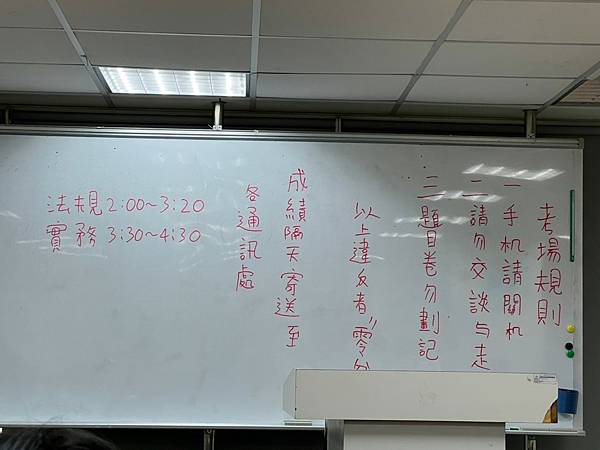 考場規則
一手机請關机
二請勿交談与走
三題目卷勿劃記
以上違反者"零分
成績隔天寄送至
各通訊處
法規2:00~3:20
實務 3:30~4:30